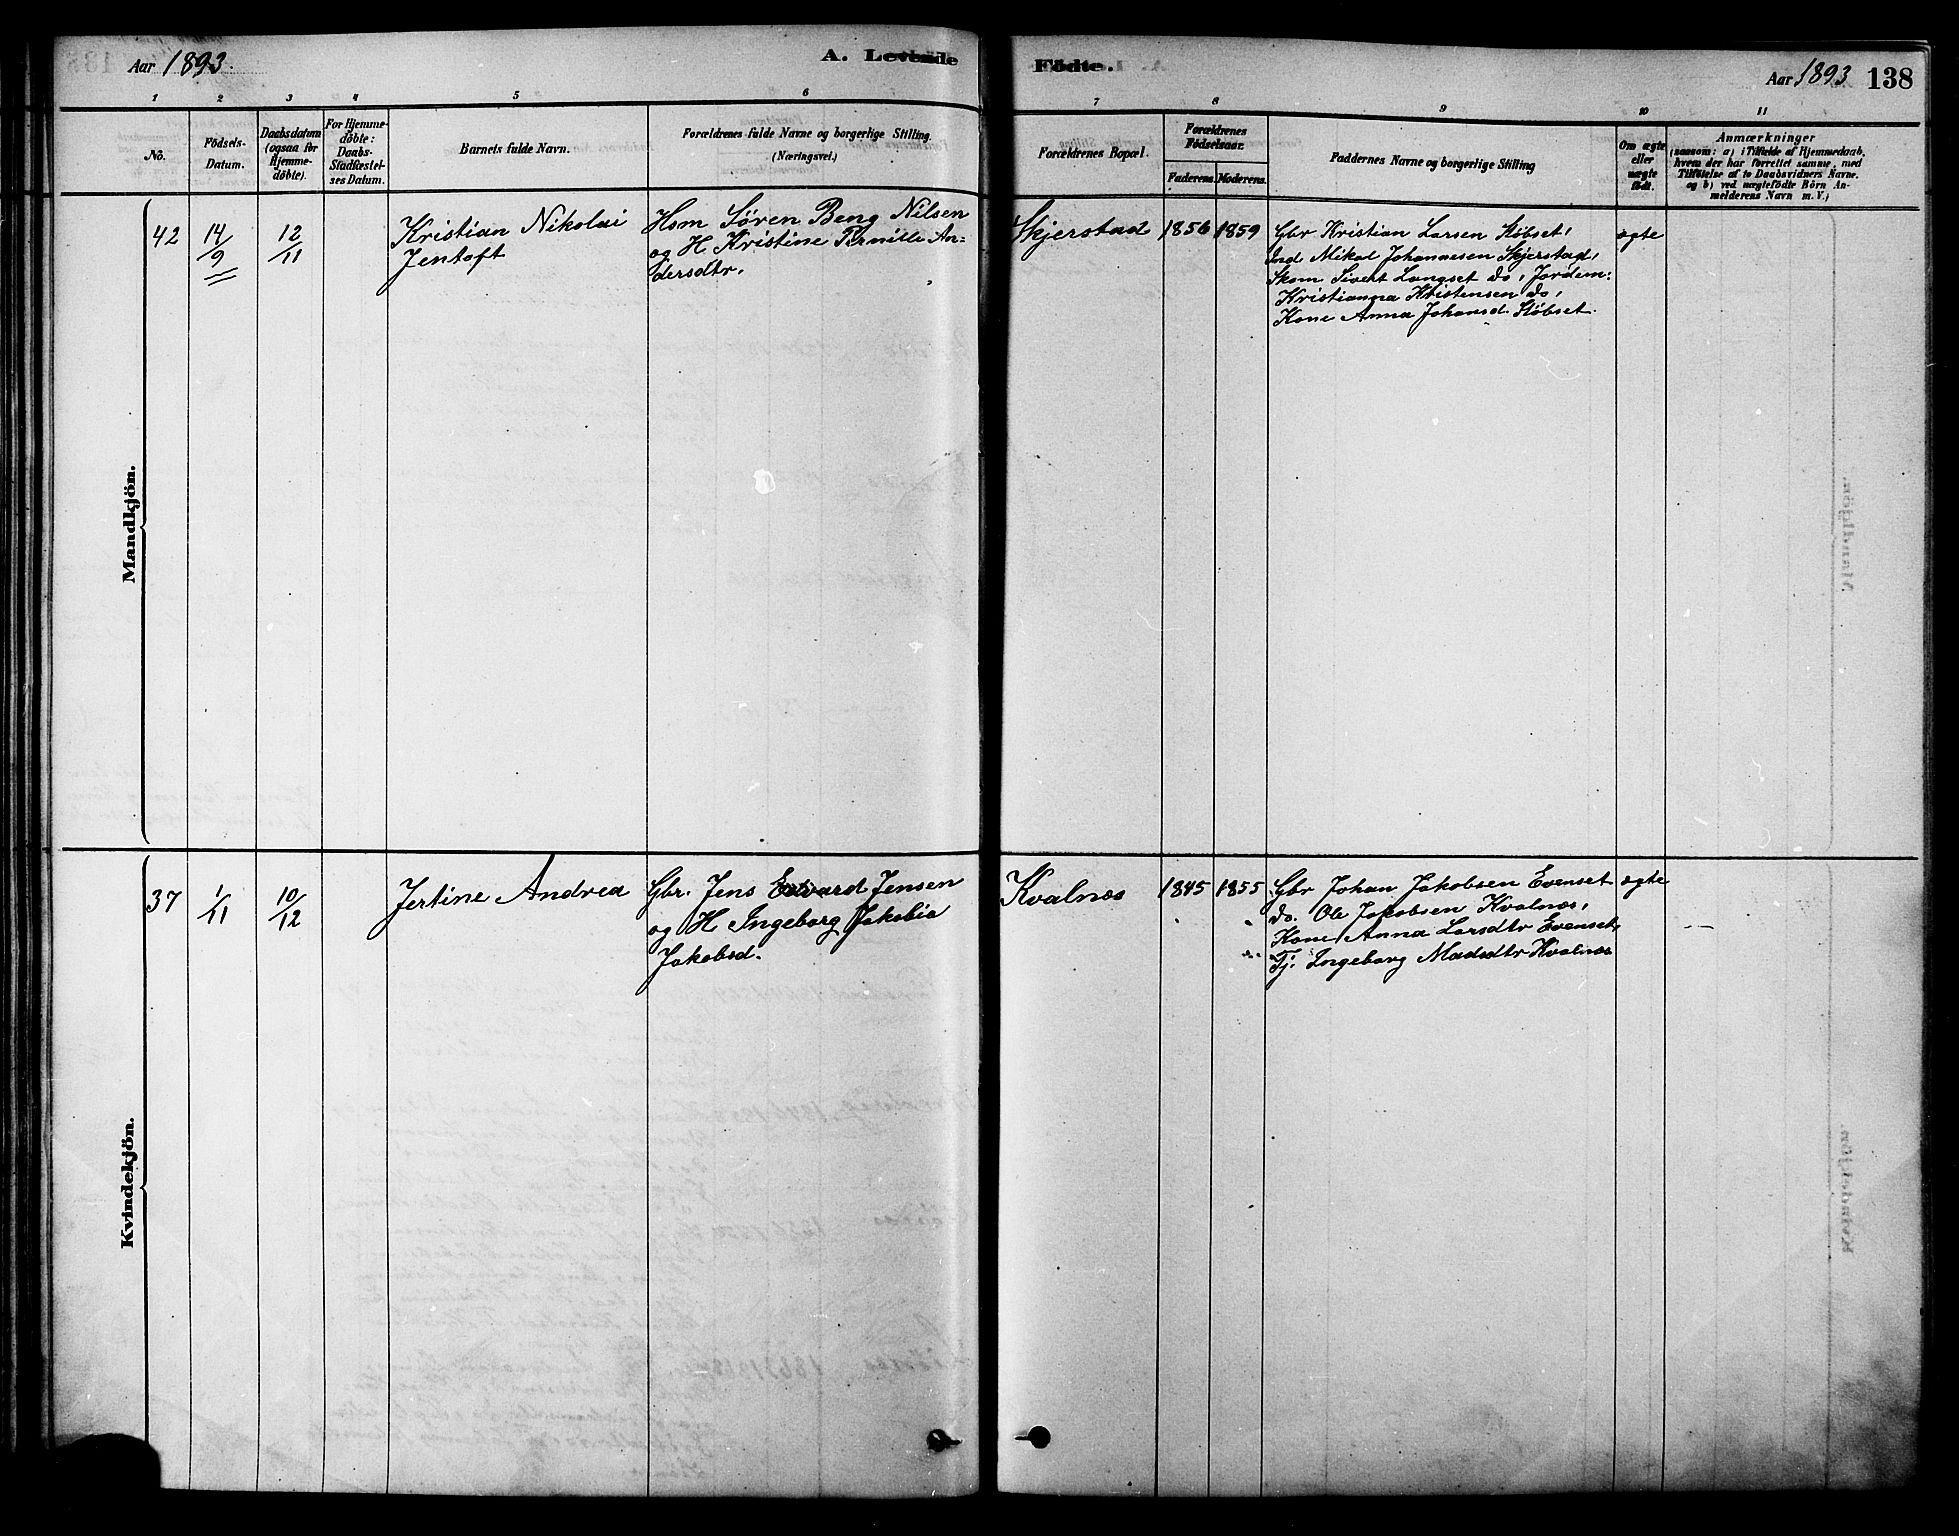 Aar 1893.
A. Levende
Födte.
Aar 1893
138
1
2
3
4
5
6
7
8
9
10
11
No.
Födsels-
Datum.
Daabsdatum
(ogsaa for
Hjemme-
döbte).
For Hjemme-
döbte:
Daabs-
Stadfæstel-
ses Datum.
Barnets fulde Navn.
Forældrenes fulde Navne og borgerlige Stilling.
(Næringsvei.)
Forældrenes Bopæl.
Forældrenes
Födselsaar.
Faderens.
Moderens.
Faddernes Navne og borgerlige Stilling
Om ægte
eller
uægte
födt.
Anmærkninger
(saasom: a) i Tilfælde af Hjemmedaab,
hvem der har forrettet samme, med
Tilföielse af to Daabsvidners Navne.
og b) ved uægtefödte Börn An-
melderens Navn m. V.)
Mandkjön.
42
14/9
12/11
Kristian Nikolai
Jentoft
Hsm Søren Beng Nilsen
og H. Kristine Pernille An-
dersdtr.
Skjerstad
1856
1859
Gbr Kristian Larsen Støbset,
Ind Mikal Johannesen Skjerstad,
Skom Sivert Langset do, Jordem:
Kristianna Kristensen do,
Kone Anna Johansd. Støbset.
ægte
Kvindekjön.
37
1/11
10/12
Jertine Andrea
Gbr. Jens Edvard Jensen
og H. Ingeborg Jakobia
Jakobsd.
Kvalnæs
1845
1855
Gbr Johan Jakobsen Evenset
do. Ole Jakobsen Kvalnæs,
Kone Anna Larsdtr Evenset,
Tj. Ingeborg Madsdtr Kvalnæs
ægte